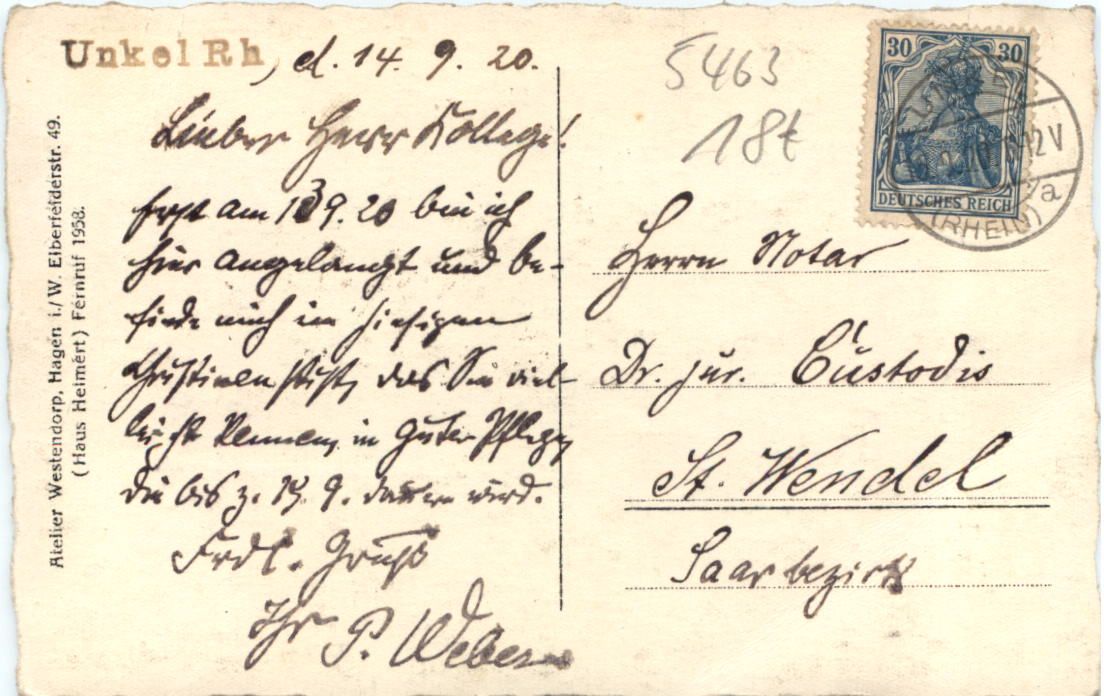 Unkel Rh, d. 14. 9. 20.
Lieber Herr Kollege!
Erst am 13 9. 20 bin ich
hier angelangt und be-
finde mich im hiesigen
Christinenstift, das Sie viel-
leicht kennen, in guter Pflege,
die bis z. 19. 9. dauern wird.
Frdl. Gruß
Ihr P. Weber
Atelier Westendorp, Hagen i./W. Elberfelderstr. 49.
(Haus Heimert) Fernruf 1958.
5463
18t
30 30
DEUTSCHES REICH
12V
a
(RHEIN)
Herrn Notar
Dr. jur. Custodis
St. Wendel
Saarbezirk